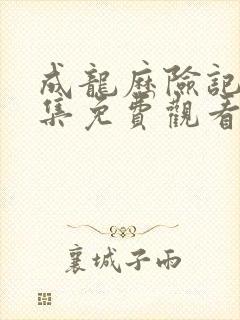 成龍歷險記
集免費觀看
襄城子雨